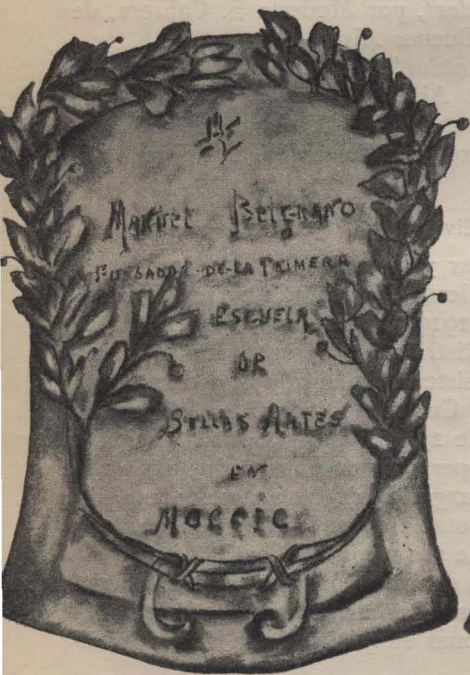 MANUEL BELGRANO
FUNDADOR-DE-LA PRIMERA
ESCUELA
DE
BELLAS ARTES
EN